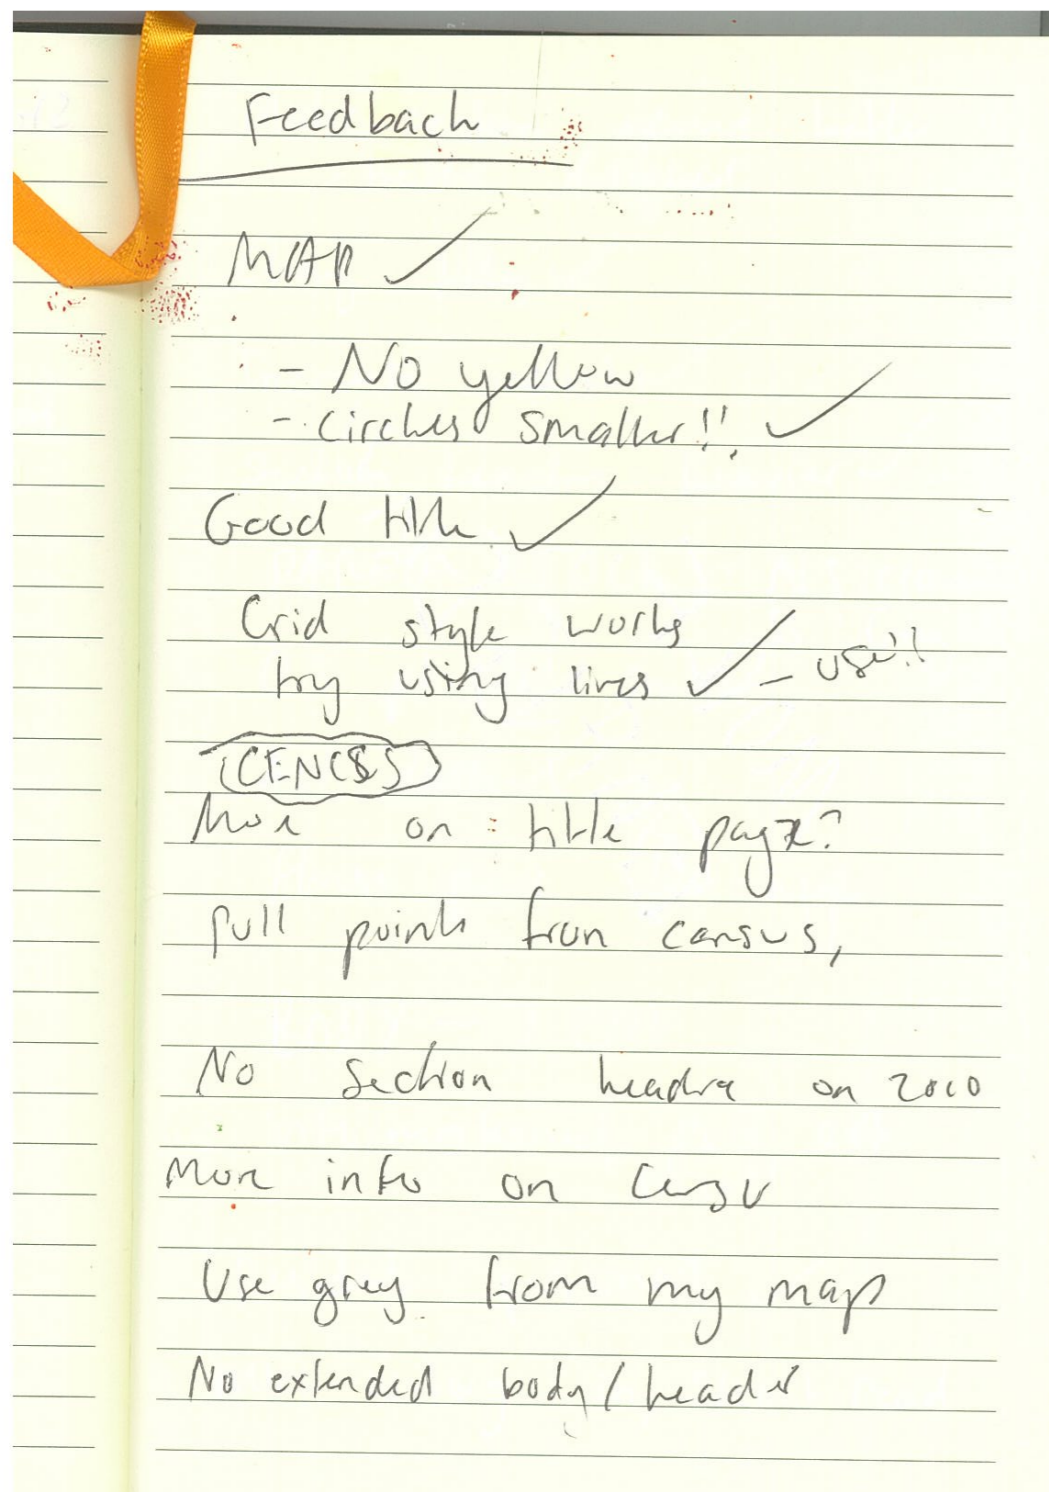 Feedback
MAP ✓
- No yellow
- Circles smaller!! ✓
Good title ✓
Grid style works
try using lines ✓ - use!!
CENCUS
More on title page?
Pull points from census,
No section header on 2010
More info on Census
Use grey from my map
No extended body/header